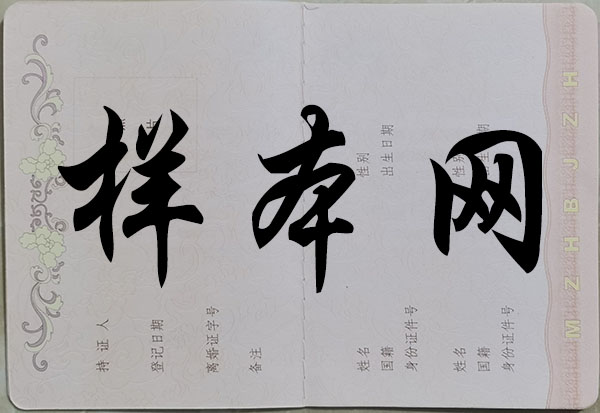 样本网
持证人
登记日期
离婚证字号
备注
姓名
性别
国籍
出生日期
身份证件号
姓名
性别
国籍
出生日期
身份证件号
MZHBJZH